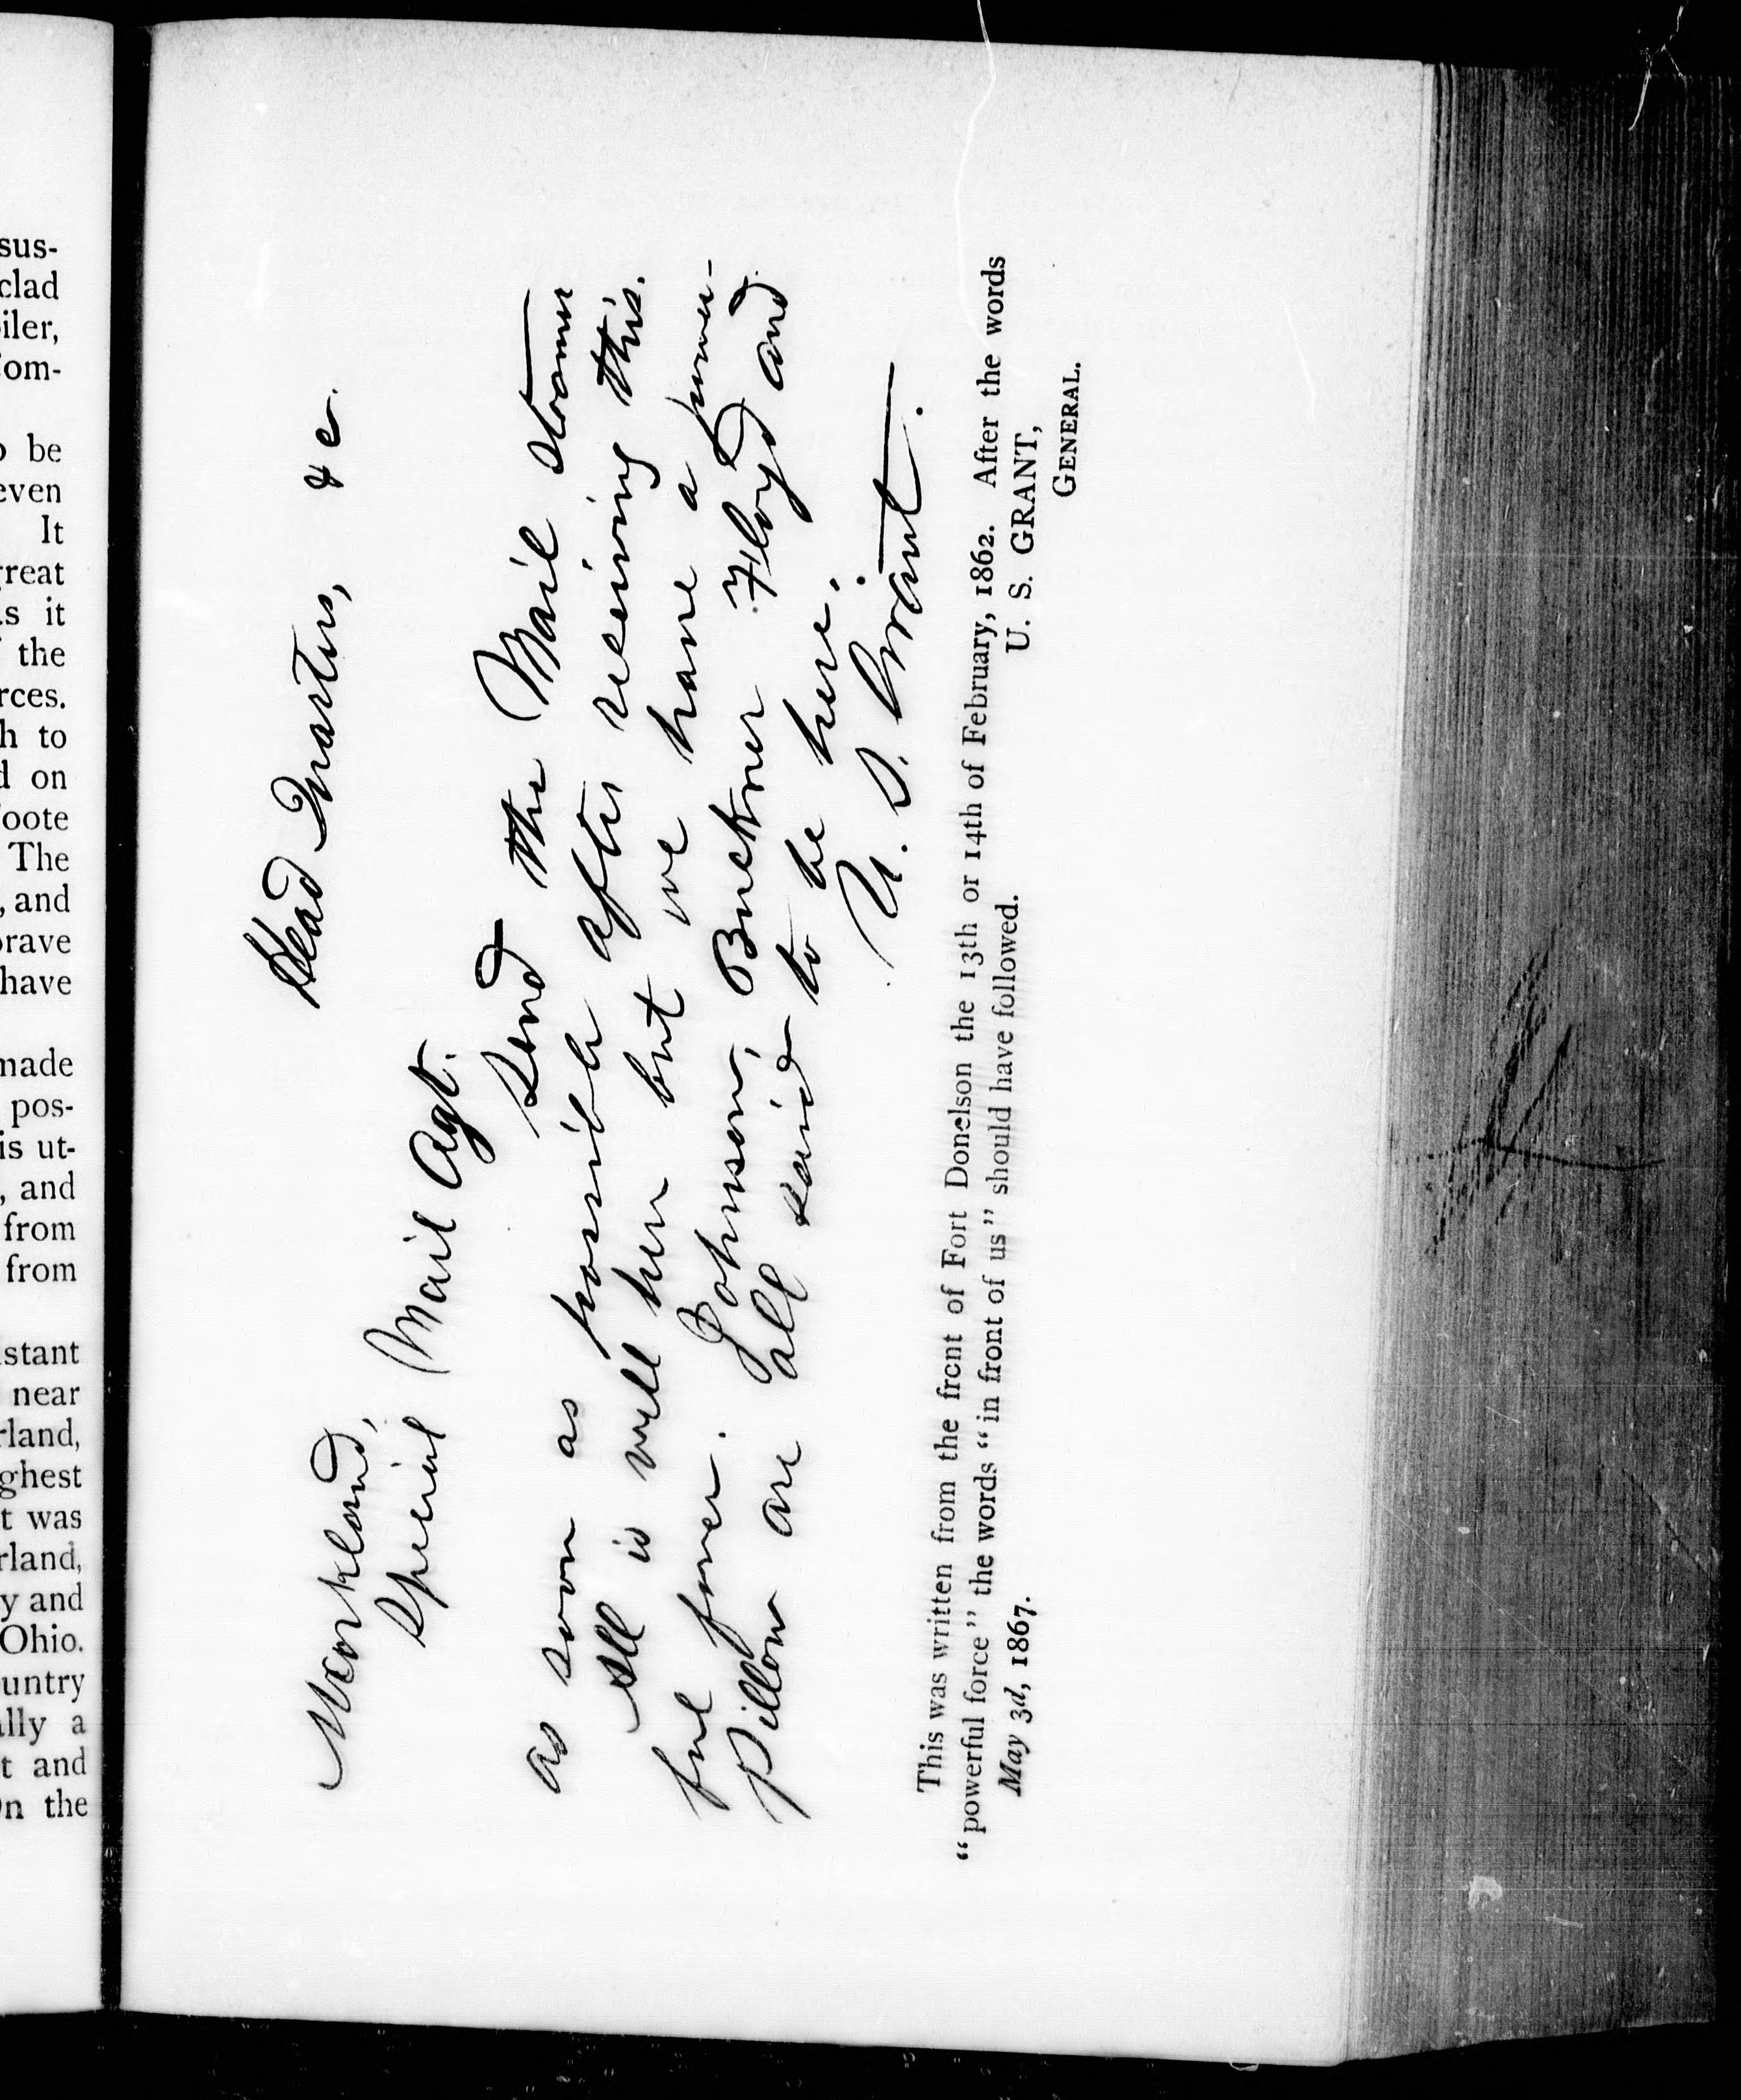 sus-
clad
iler,
om-
be
even
It
reat
s it
the
rces.
h to
d on
oote
The
, and
rave
have
made
pos-
is ut-
, and
from
from
stant
near
rland,
ghest
t was
rland,
y and
Ohio.
untry
ally a
t and
n the
Head Quarters, &c.
Markland,
Special Mail Agt.
Send the Mail steamer
as soon as possible after receiving this.
All is well here but we have a power-
ful force. Johnson, Buckner Floyd and
Pillow are all said to be here.
U. S. Grant.
This was written from the front of Fort Donelson the 13th or 14th of February, 1862. After the words
“powerful force” the words “in front of us” should have followed.
U. S. GRANT,
May 3d, 1867.
GENERAL.